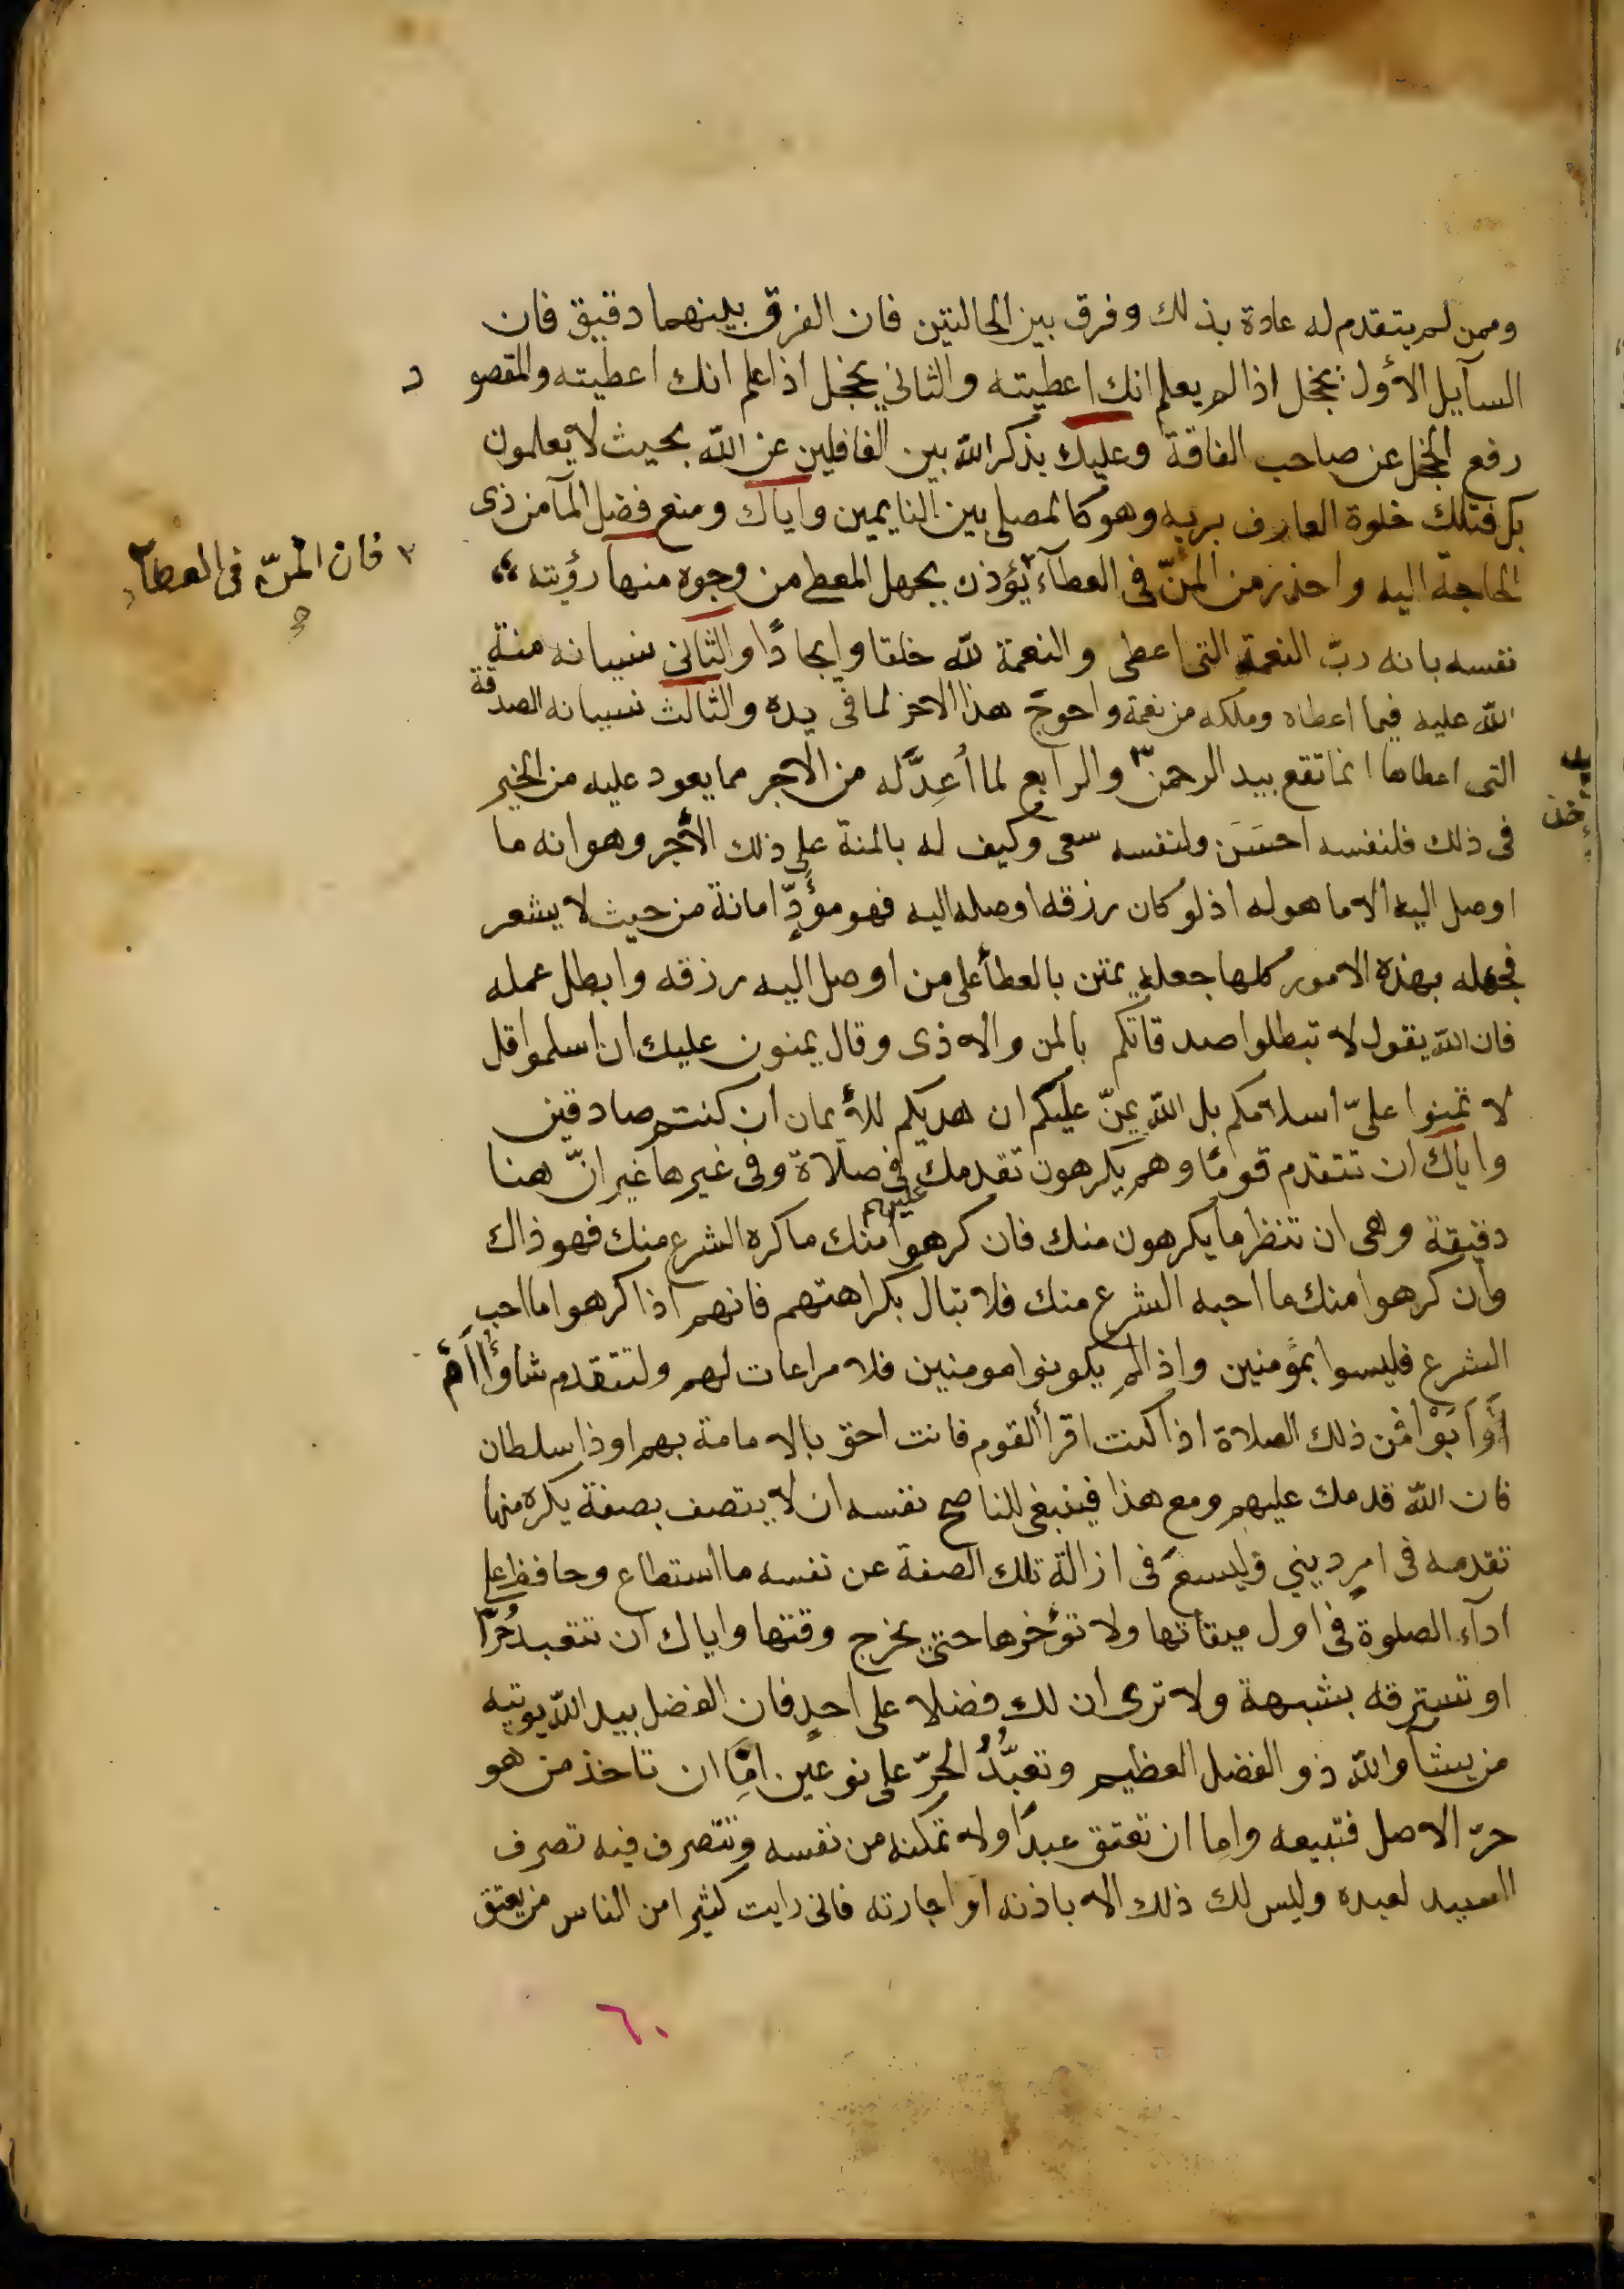 وممن لم يتقدم له عادة بذلك وفرق بين الحالتين فان الفرق بينهما دقيق فان
السآيل الأول يخجل اذا لم يعلم انك اعطيته والثاني يخجل اذا علم انك اعطيته والمقصود
رفع الخجل عن صاحب الفاقة وعليك بذكر الله بين الغافلين عن الله بحيث لا يعلمون
بك فتلك خلوة العارف بربه وهو كالمصلى بين النايمين واياك ومنع فضل المآ من ذى
الحاجة اليه واحذر من المنّ فى العطآء يؤذن بجهل المعطى من وجوه منها رؤيته
فان المنّ فى العطآء
نفسه بانه ربّ النعمة التى اعطى والنعمة لله خلقا وايجادًا والثانى نسيانه منة
الله عليه فيما اعطاه وملكه من نعمه واحوج هذا الاخر لما فى يده والثالث نسيانه الصدقة
التى اعطاها انما تقع بيد الرحمن والرابع لما أعِدَّ له من الأجر مما يعود عليه من الخير
فى ذلك فلنفسه احسَنَ ولنفسه سعى وكيف له بالمنة على ذلك الأجر وهو انه ما
اوصل اليه الا ما هو له اذ لو كان رزقه اوصله اليه فهو مؤدٍّ امانة من حيث لا يشعر
فجهله بهذه الامور كلها جعله يمتن بالعطأ على من اوصل اليه رزقه وابطل عمله
فان الله يقول لا تبطلوا صدقاتكم بالمن والاذى وقال يمنون عليك ان اسلموا قل
لا تمنوا علىّ اسلامكم بل الله يمنّ عليكم ان هديكم للأيمان ان كنتم صادقين
واياك ان تتقدم قومًا وهم يكرهون تقدمك عليهم فى صلاة وفى غيرها غير انّ هنا
دقيقة وهى ان تنظر ما يكرهون منك فان كرهوا منك ما كره الشرع منك فهو ذاك
وان كرهوا منك ما احبه الشرع منك فلا تبال بكراهتهم فانهم اذا كرهوا ما احب
الشرع فليسوا بمؤمنين واذا لم يكونوا مومنين فلا مراعات لهم ولتتقدم شاؤا اَم
أَوْ اَبَوْا فمن ذلك الصلاة اذا كنت اقرأ القوم فانت احق بالامامة بهم او ذا سلطان
فان الله قدمك عليهم ومع هذا فينبغى للناصح نفسه ان لا يتصف بصفة يكره منها
تقدمه فى امرٍ دينيٍ وليسعَ فى ازالة تلك الصفة عن نفسه ما استطاع وحافظ على
ادآء الصلوة فى اول ميقاتها ولا تؤخرها حتى يخرج وقتها واياك ان تتعبد حُرًّا
او تسترقه بشبهة ولا ترى ان لك فضلا على احدٍ فان الفضل بيد الله يوتيه
من يشآ والله ذو الفضل العظيم وتعبُّدُ الحرّ على نوعين امّا ان تاخذ من هو
حرّ الاصل فتبيعه واما ان تعتق عبدًا ولا تمكنه من نفسه وتتصرف فيه تصرف
السيد لعبده وليس لك ذلك الا باذنه او اجارته فانى رايت كثيرا من الناس من يعتق
٦٠